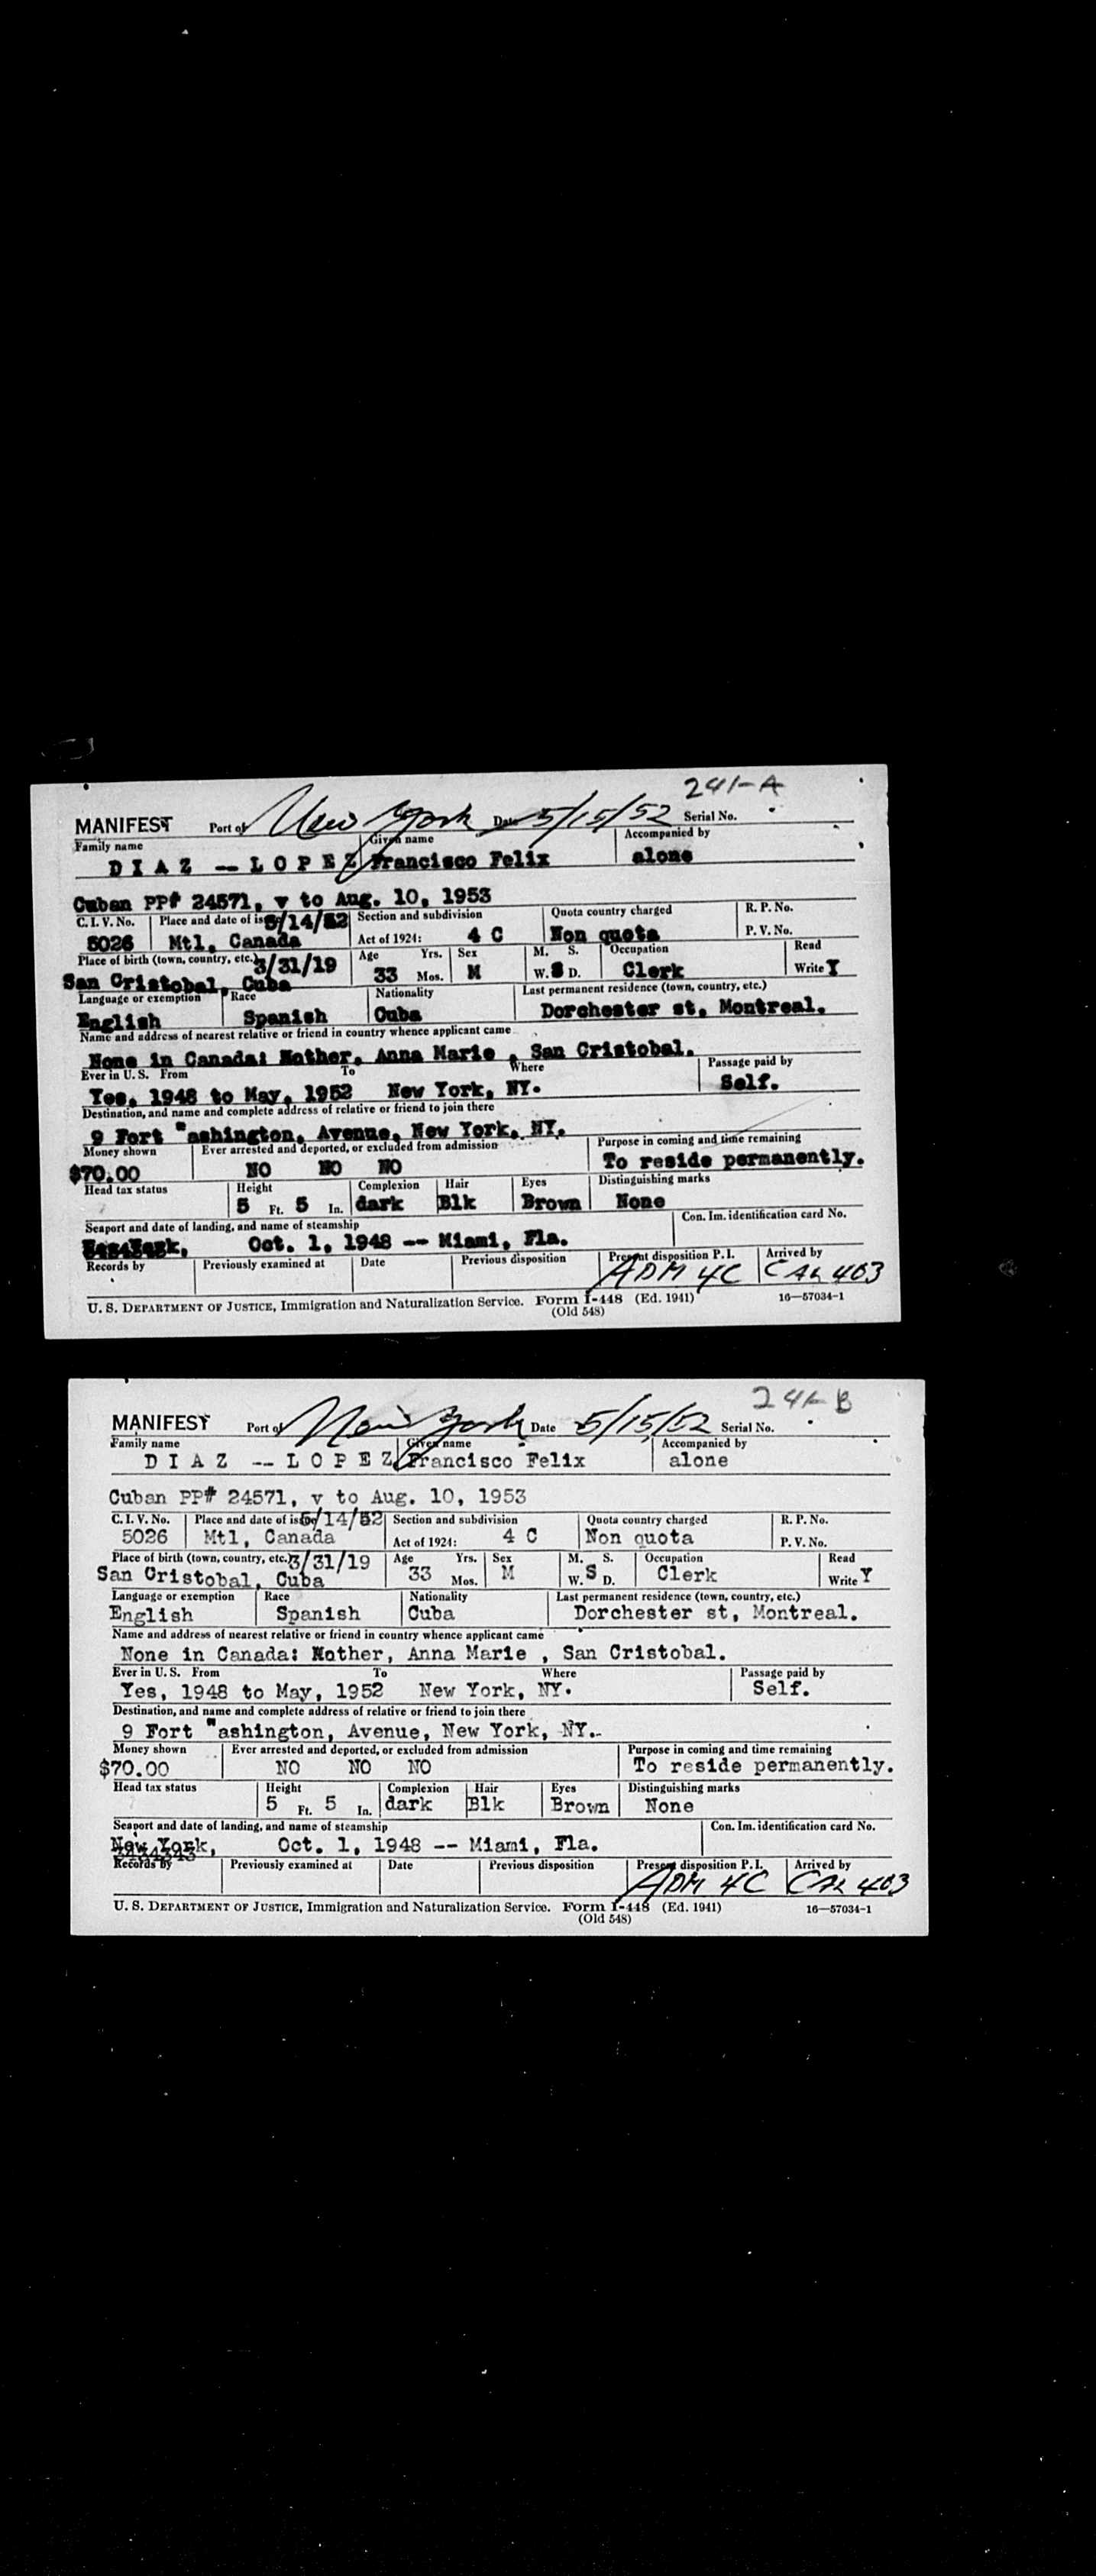 241-A
MANIFEST Port of New York Date 5/15/52 Serial No.
Family name Given name Accompanied by
D I A Z -- L O P E Z Francisco Felix alone
Cuban PP# 24571, v to Aug. 10, 1953
C. I. V. No. Place and date of issue 5/14/52 Section and subdivision Quota country charged R. P. No.
5026 Mtl, Canada Act of 1924: 4 C Non quota P. V. No.
Place of birth (town, country, etc.) 3/31/19 Age Yrs. Sex M. S. Occupation Read
San Cristobal, Cuba 33 Mos. M W. S D. Clerk Write Y
Language or exemption Race Nationality Last permanent residence (town, country, etc.)
English Spanish Cuba Dorchester st, Montreal.
Name and address of nearest relative or friend in country whence applicant came
None in Canada: Mother, Anna Marie , San Cristobal.
Ever in U. S. From To Where Passage paid by
Yes, 1948 to May, 1952 New York, NY. Self.
Destination, and name and complete address of relative or friend to join there
9 Fort "ashington, Avenue, New York, NY.
Money shown Ever arrested and deported, or excluded from admission Purpose in coming and time remaining
$70.00 NO NO NO To reside permanently.
Head tax status Height Complexion Hair Eyes Distinguishing marks
5 Ft. 5 In. dark Blk Brown None
Seaport and date of landing, and name of steamship Con. Im. identification card No.
New York, Oct. 1, 1948 -- Miami, Fla.
Records by Previously examined at Date Previous disposition Present disposition P. I. Arrived by
ADM 4C CAL 403
U. S. DEPARTMENT OF JUSTICE, Immigration and Naturalization Service. Form I-448 (Ed. 1941) 16—57034-1
(Old 548)
241-B
MANIFEST Port of New York Date 5/15/52 Serial No.
Family name Given name Accompanied by
D I A Z -- L O P E Z Francisco Felix alone
Cuban PP# 24571, v to Aug. 10, 1953
C. I. V. No. Place and date of issue 5/14/52 Section and subdivision Quota country charged R. P. No.
5026 Mtl, Canada Act of 1924: 4 C Non quota P. V. No.
Place of birth (town, country, etc.) 3/31/19 Age Yrs. Sex M. S. Occupation Read
San Cristobal, Cuba 33 Mos. M W. S D. Clerk Write Y
Language or exemption Race Nationality Last permanent residence (town, country, etc.)
English Spanish Cuba Dorchester st, Montreal.
Name and address of nearest relative or friend in country whence applicant came
None in Canada: Mother, Anna Marie , San Cristobal.
Ever in U. S. From To Where Passage paid by
Yes, 1948 to May, 1952 New York, NY. Self.
Destination, and name and complete address of relative or friend to join there
9 Fort "ashington, Avenue, New York, NY.
Money shown Ever arrested and deported, or excluded from admission Purpose in coming and time remaining
$70.00 NO NO NO To reside permanently.
Head tax status Height Complexion Hair Eyes Distinguishing marks
5 Ft. 5 In. dark Blk Brown None
Seaport and date of landing, and name of steamship Con. Im. identification card No.
New York, Oct. 1, 1948 -- Miami, Fla.
3434343
Records by Previously examined at Date Previous disposition Present disposition P. I. Arrived by
ADM 4C CAL 403
U. S. DEPARTMENT OF JUSTICE, Immigration and Naturalization Service. Form I-448 (Ed. 1941) 16—57034-1
(Old 548)